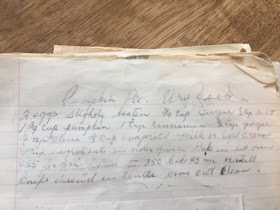 Pumpkin Pie. Very Good.
2 eggs slightly beaten 3/4 cup sugar 1/2 tsp salt
1 3/4 cup pumpkin 1 tsp cinnamon 1/2 tsp ginger
cloves cup evaporated milk or cream
Mix ingredients in order given
425° 15 min 350 bake 45 min or till
knife inserted in centre come out clean